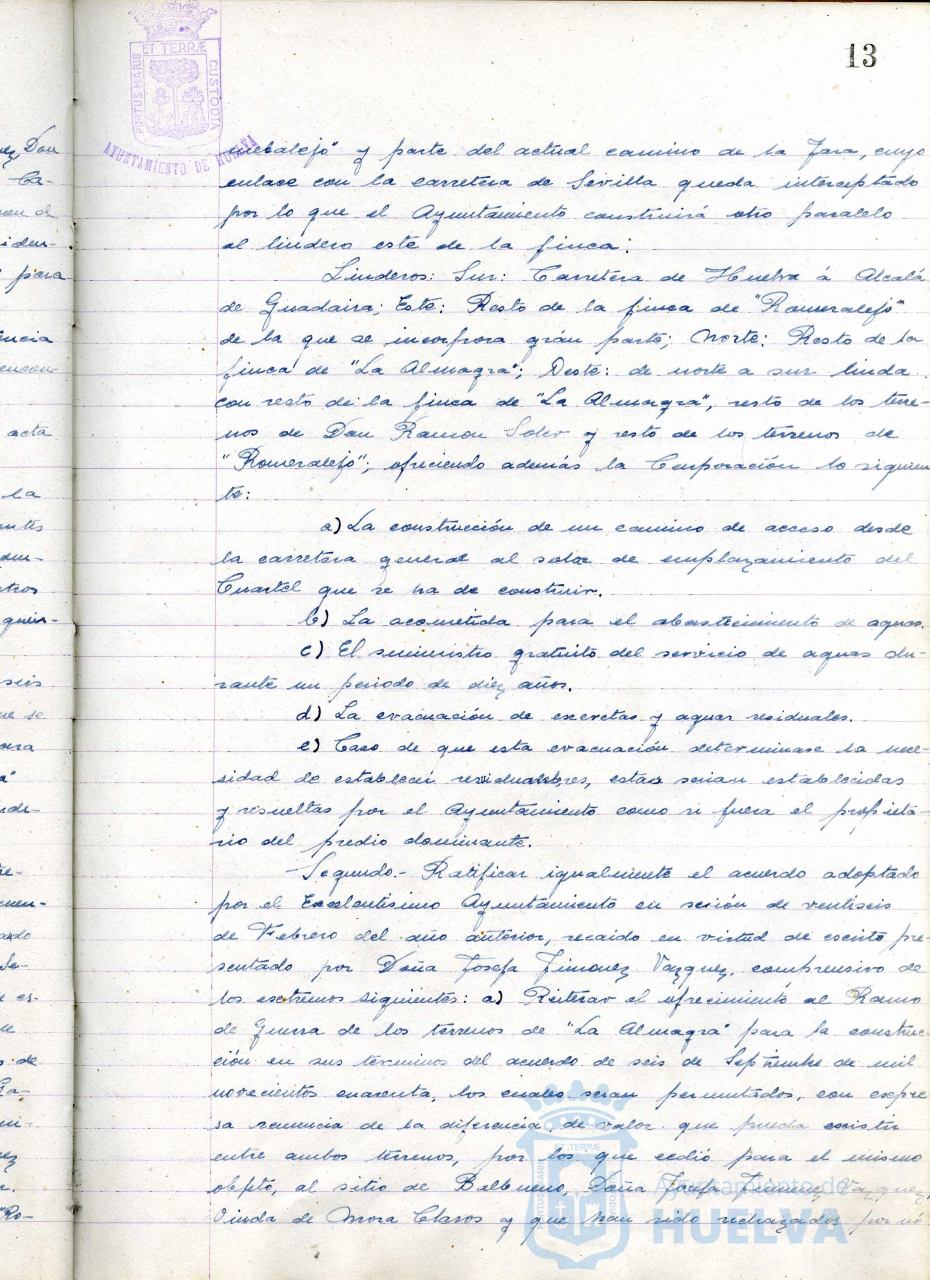 13
PORTUS MARIS ET TERRÆ CUSTODIA
AYUNTAMIENTO DE HUELVA
meralejo" y parte del actual camino de la Jara, cuyo
enlace con la carretera de Sevilla queda interceptado
por lo que el Ayuntamiento construirá otro paralelo
al lindero este de la finca:
Linderos: Sur: Carretera de Huelva á Alcalá
de Guadaira; Este: Resto de la finca de "Romeralejo"
de la que se incorpora gran parte; Norte: Resto de la
finca de "La Almagra"; Oeste: de norte a sur linda
con resto de la finca de "La Almagra", resto de los terre-
nos de Don Ramon Soler y resto de los terrenos de
"Romeralejo"; ofreciendo además la Corporación lo siguien
te:
a) La construcción de un camino de acceso desde
la carretera general al solar de emplazamiento del
Cuartel que se ha de construir.
b) La acometida para el abastecimiento de aguas.
c) El suministro gratuito del servicio de aguas du-
rante un periodo de diez años.
d) La evacuación de excretas y aguas residuales.
e) Caso de que esta evacuación determinase la nece-
sidad de establecer estas serian establecidas
y resueltas por el Ayuntamiento como si fuera el propieta-
rio del predio dominante.
Segundo.- Ratificar igualmente el acuerdo adoptado
por el Excelentísimo Ayuntamiento en sesión de ventiseis
de Febrero del año anterior, recaido en virtud de escrito pre-
sentado por Doña Josefa Jimenez Vazquez, comprensivo de
los extremos siguientes: a) Reiterar el ofrecimiento al Ramo
de Guerra de los terrenos de "La Almagra" para la construc-
ción en sus términos del acuerdo de seis de Septiembre de mil
novecientos cuarenta, los cuales seran permutados, con expre
sa renuncia de la diferencia de valor que pueda existir
entre ambos terrenos, por los que cedió para el mismo
objeto, al sitio de Balbueno, Doña Josefa Jimenez Vazquez,
Viuda de Mora Claros y que han sido rechazados por nó
Ayuntamiento de
HUELVA